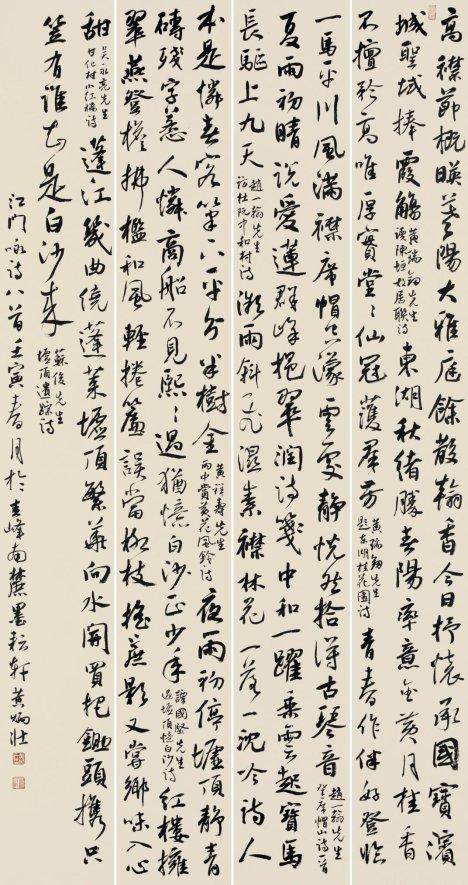 高襟節概暎陽大雅庭餘散翰香今日抒懷承國寶濱
城聖域捧霞觴
黃瑞翎先生
讀陳垣故居聯詩
東湖秋緒勝春陽率意金黃月桂香
不擅矜高唯厚實堂堂仙冠護群芳
黃瑞翎先生
題東湖桂花園詩
青春作伴好登臨
一馬平川風滿襟席帽只濛雲處靜恍然拾得古琴音
趙一翰先生
登席帽山詩一首
夏雨初晴說愛蓮群峰挹翠潤詩箋中和一躍乘雲起寶馬
長驅上九天
趙一翰先生
訪杜阮中和村詩
微雨斜飛濕素襟林花一落一沈吟詩人
本是憐春客平分半樹金
黃祥壽先生
雨中賞黃花風鈴詩
夜雨初停墟頂靜青
磚殘字惹人憐高船不見熙熙過猶憶白沙正少年
譚國堅先生
過墟頂憶白沙詩
紅樓擁
翠燕登樓拂檻和風輕捲簾誤當柳枝搖燕影又嘗鄉味入心
甜
永亮先生
甘化村小紅橋詩
蓬江幾曲繞蓬萊墟頂繁華向水開買把鋤頭攜只
笠有誰知是白沙來
蘇俊先生
墟頂遺蹤詩
江門詠詩八首壬寅春月於圭峰南麓墨耘軒黃炳壯